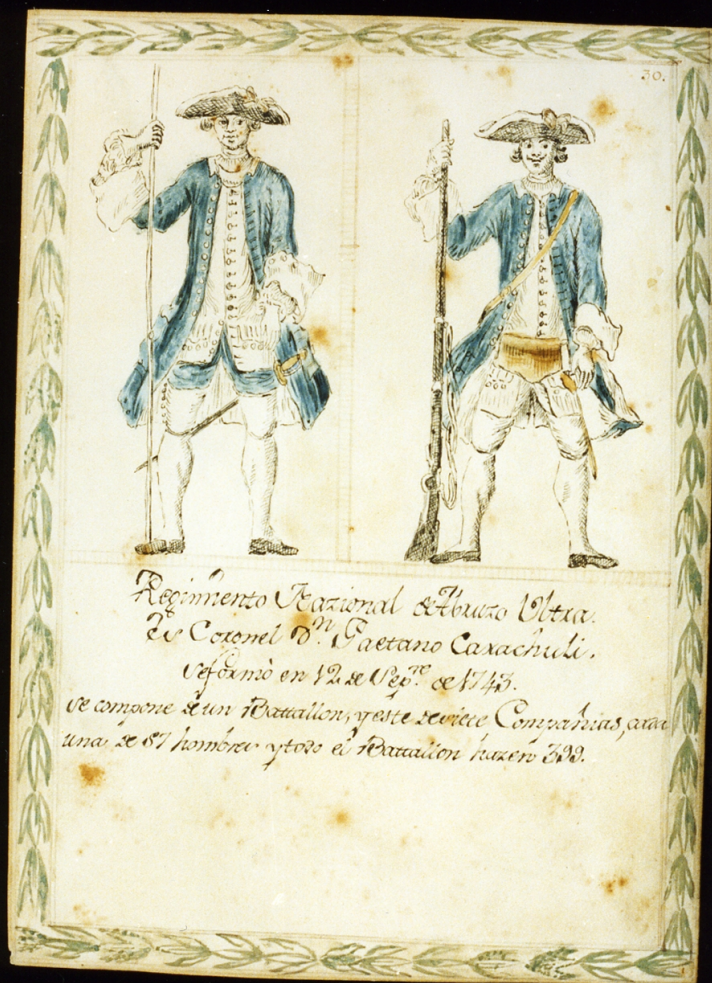 30.
Regimiento Nazional de Abruzo Ultra.
Es Coronel Dn. Gaetano Carachuli.
Se formò en 12 de Sepre. de 1743.
se compone de un Battallon, y este de siete Compañias, cada
una de 57 hombres y todo el Battallon hazen 399.